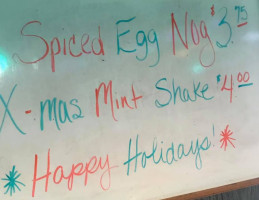 Spiced Egg Nog $3.75
X-mas Mint Shake $4.00
* Happy Holidays! *